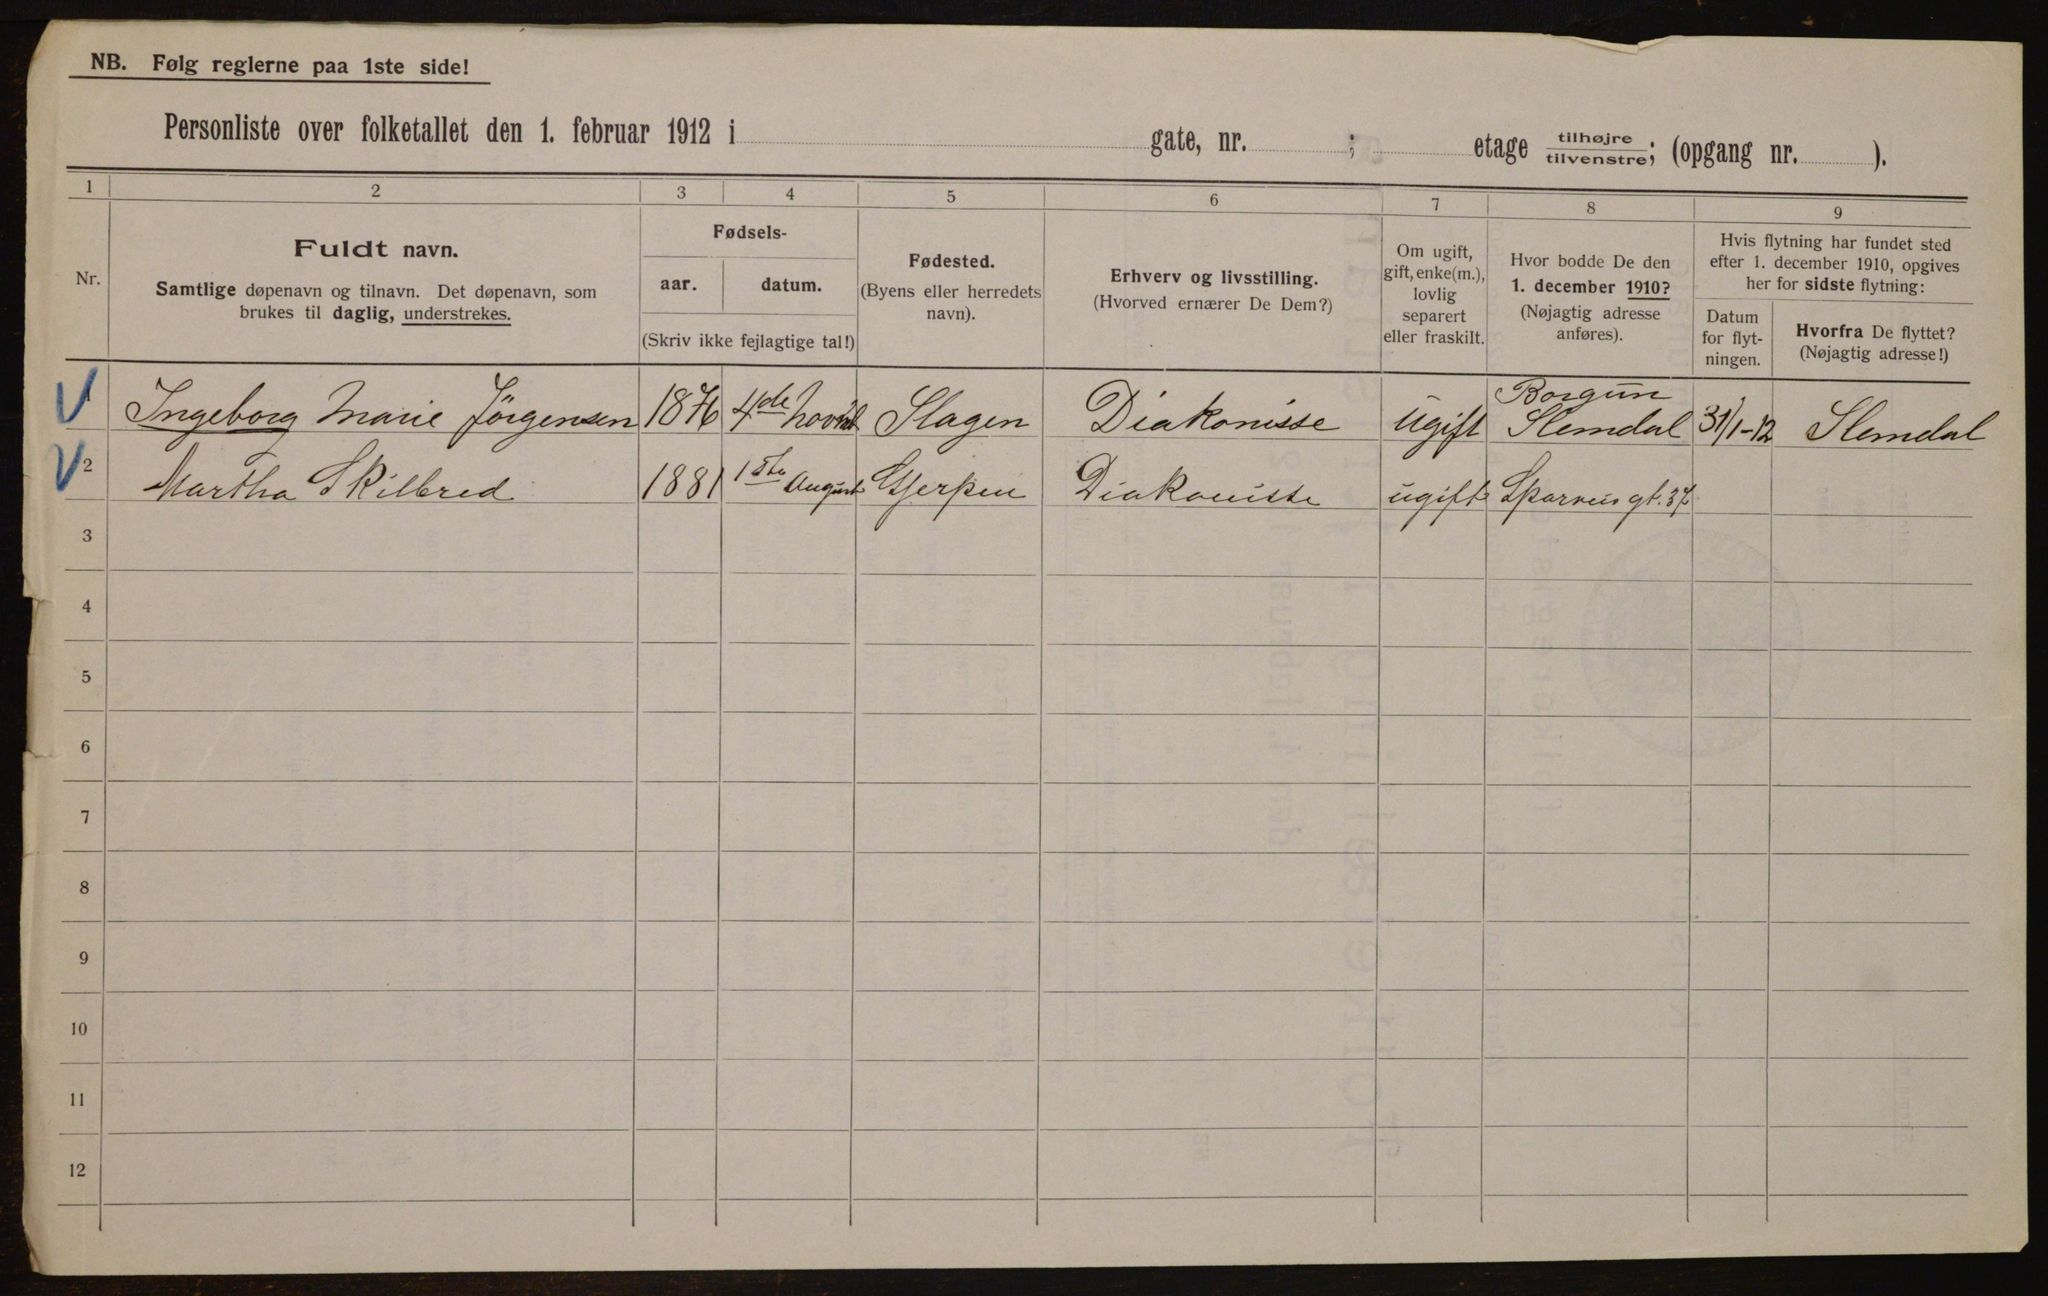 NB. Følg reglerne paa 1ste side!
Personliste over folketallet den 1. februar 1912 i gate, nr. ; etage tilhøjre/tilvenstre; (opgang nr. ).
1 2 3 4 5 6 7 8 9
Nr.
Fuldt navn.
Samtlige døpenavn og tilnavn. Det døpenavn, som
brukes til daglig, understrekes.
Fødsels-
aar. datum.
(Skriv ikke fejlagtige tal!)
Fødested.
(Byens eller herredets
navn).
Erhverv og livsstilling.
(Hvorved ernærer De Dem?)
Om ugift,
gift, enke(m.),
lovlig
separert
eller fraskilt.
Hvor bodde De den
1. december 1910?
(Nøjagtig adresse
anføres).
Hvis flytning har fundet sted
efter 1. december 1910, opgives
her for sidste flytning:
Datum
for flyt-
ningen.
Hvorfra De flyttet?
(Nøjagtig adresse!)
1 Ingeborg Marie Jørgensen 1876 4de Slagen Diakonisse ugift Slemdal 31/1-12 Slemdal
2 Martha Skilbred 1881 1ste August Gjerpen Diakonisse ugift gt. 37
3
4
5
6
7
8
9
10
11
12